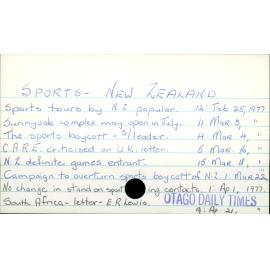 SPORTS - NEW ZEALAND
Sports tours by N.Z. popular. 12: Feb 25, 1977
Sunnyvale complex may open in July. 11 Mar 3, "
The sports boycott - S/leader. 4 Mar 4, "
C.A.R.E. criticised on U.K. letter. 5 Mar 16, "
N.Z. definite games entrant. 15 Mar 18, "
Campaign to overturn sports boycott of N.Z. 1: Mar 22, "
No change in stand on sport ing contacts. 1: Ap 1, 1977.
South Africa - letter - E.R. Lewis. OTAGO DAILY TIMES
9: Ap. 21, "